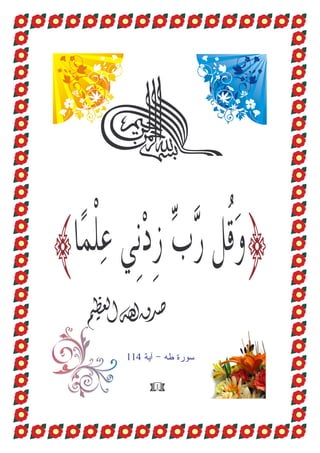 بسم الله الرحمن الرحيم
﴿وَقُل رَّبِّ زِدْنِي عِلْمًا﴾
صدق الله العظيم
سورة طه - آية 114